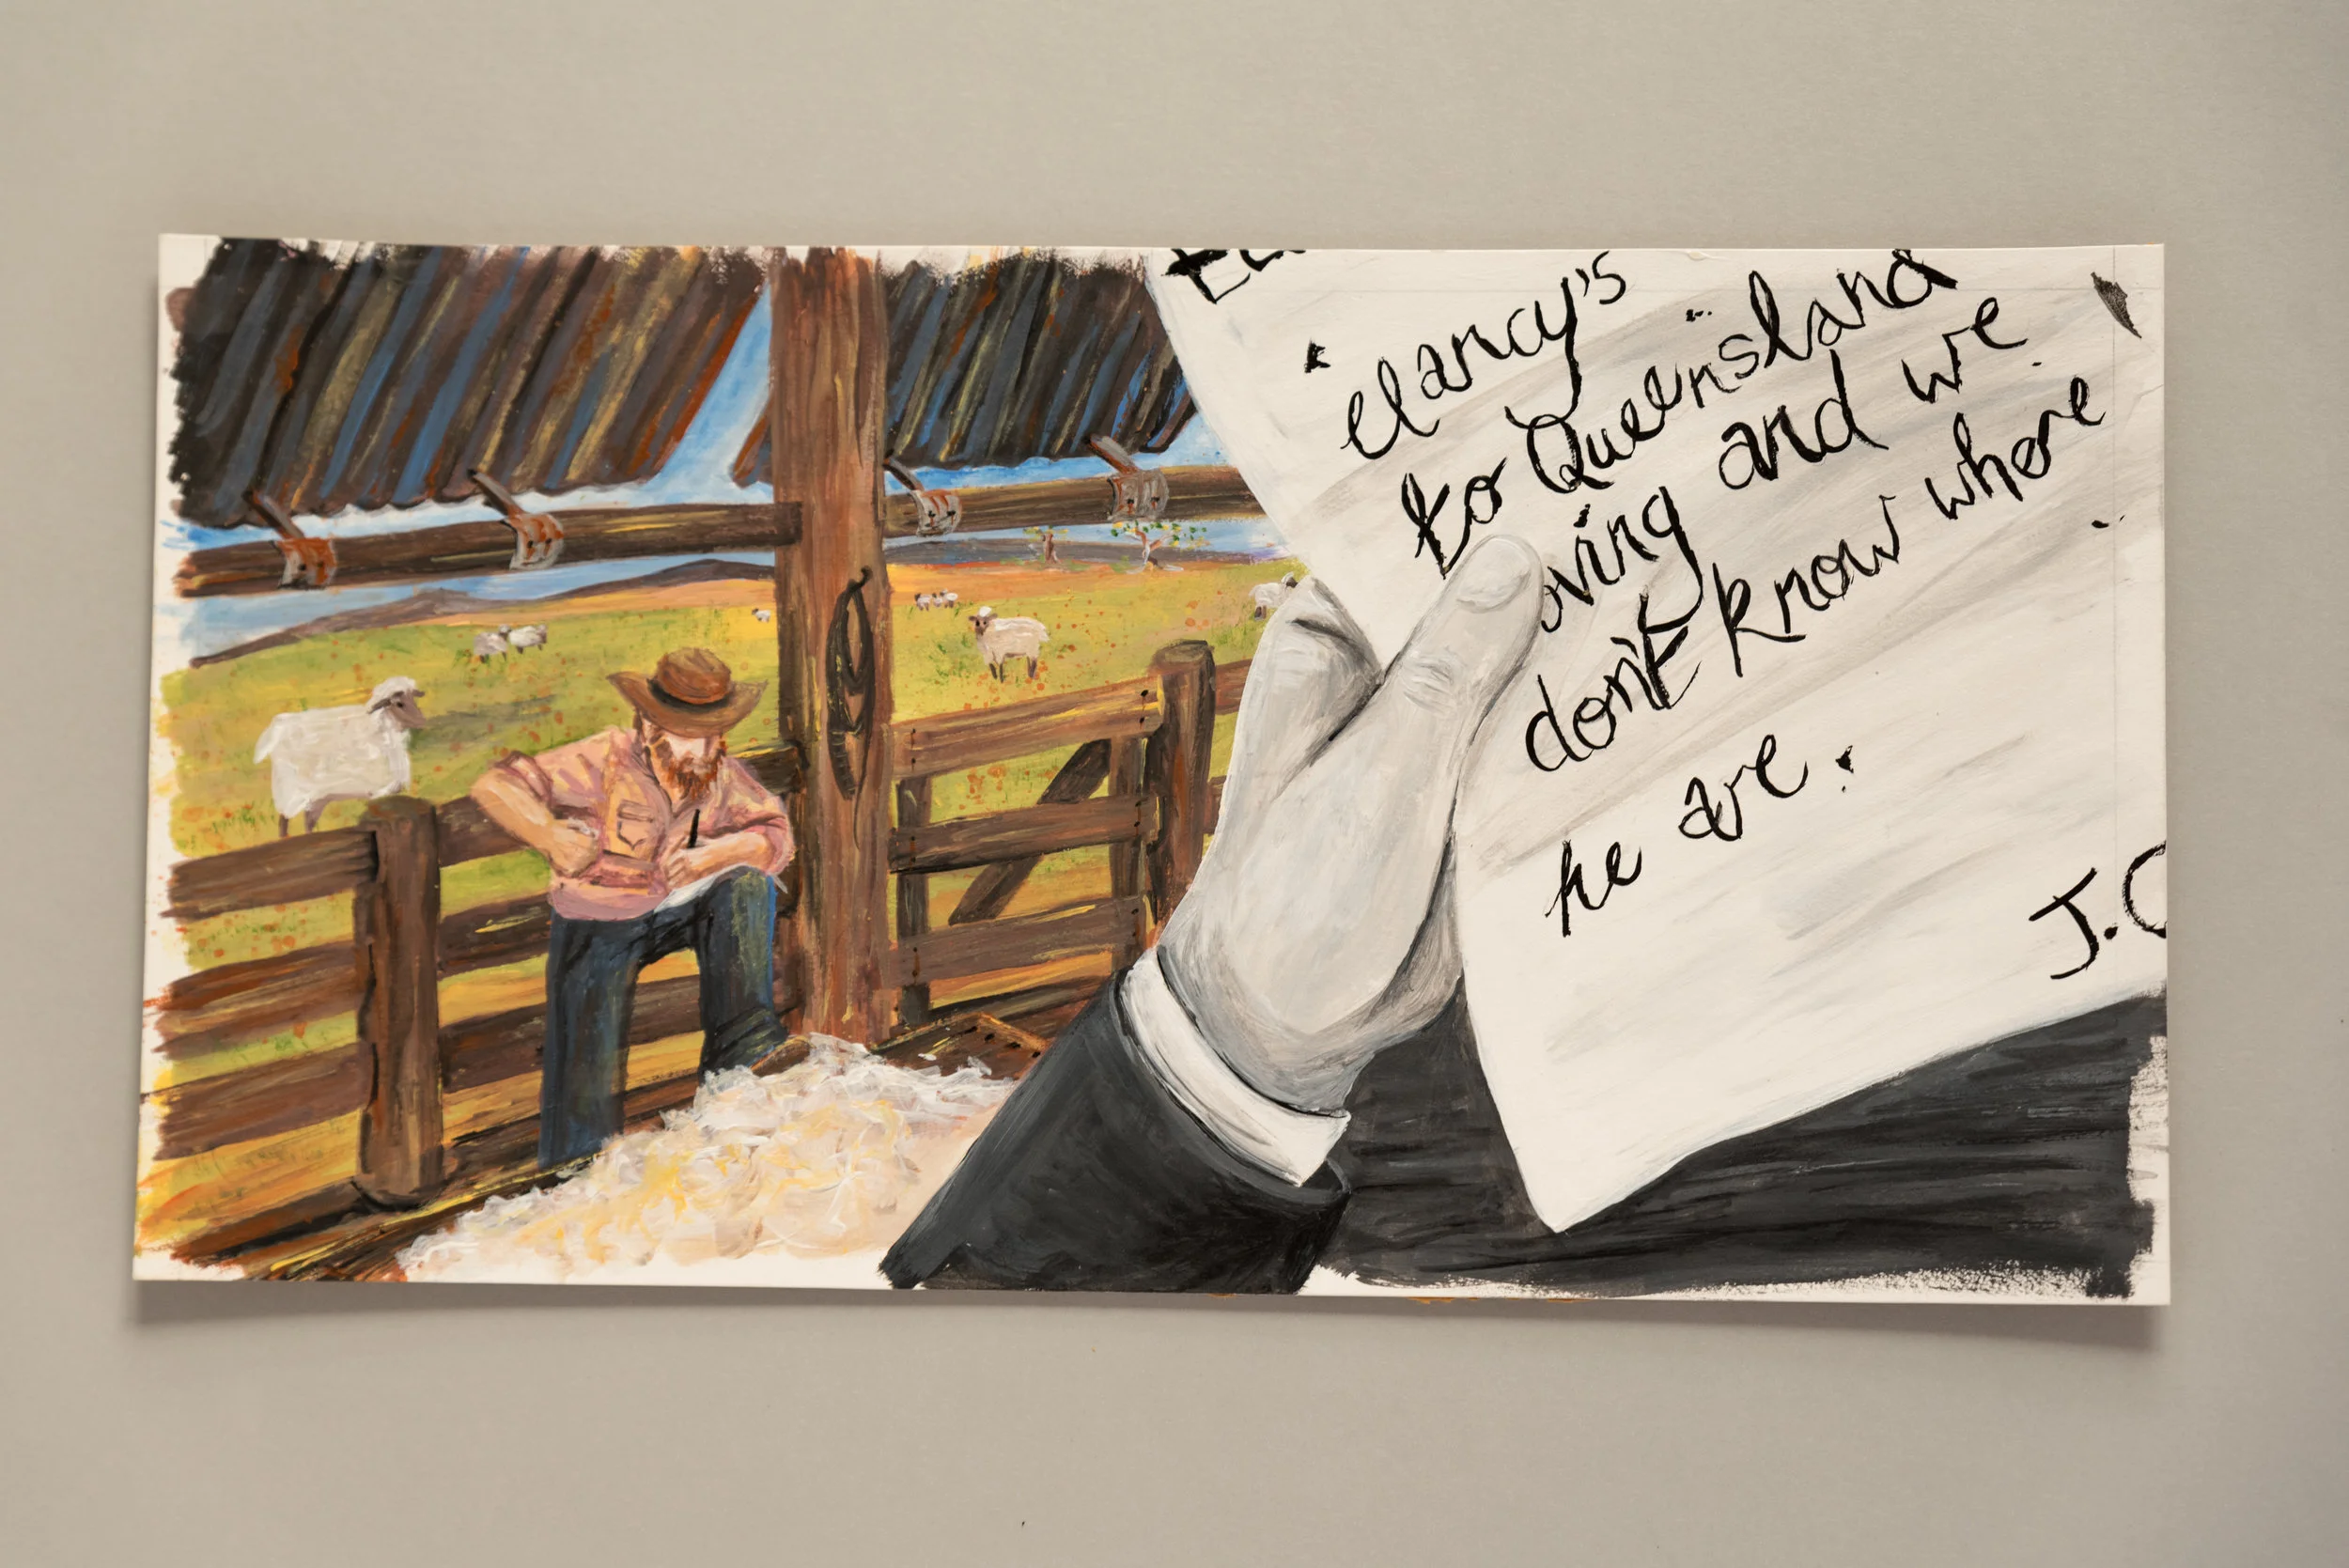 clancy's
to Queensland
oving and we
don't know where
he are.
J.C